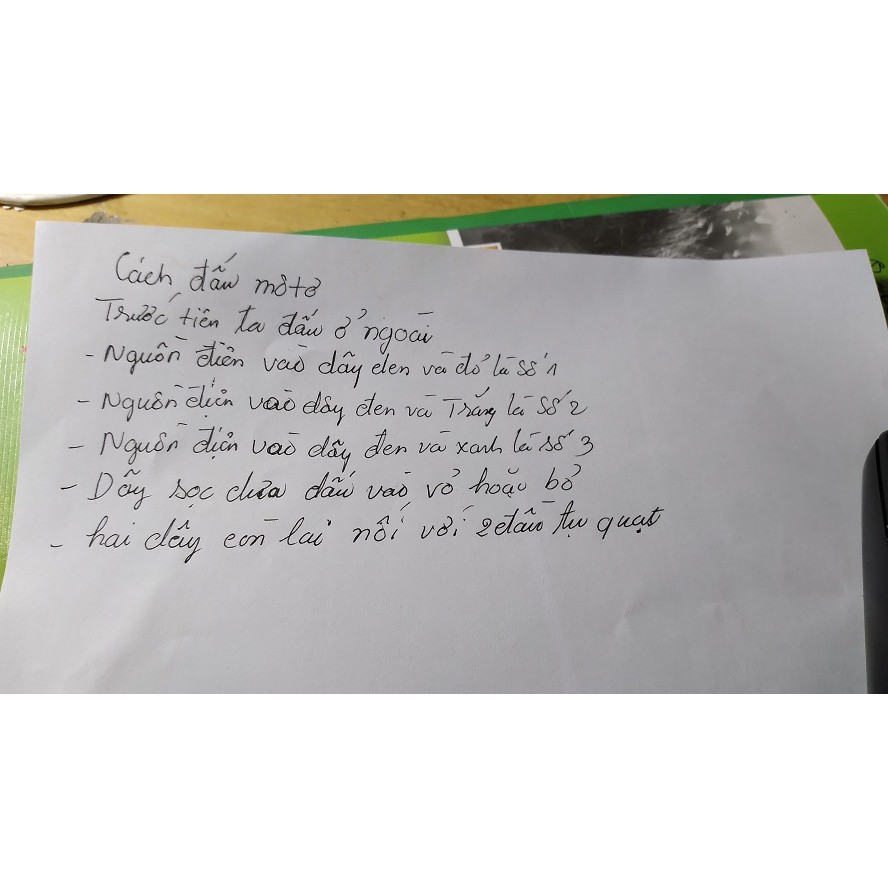 Cách đấu môtơ
Trước tiên ta đấu ở ngoài
- Nguồn điện vào dây đen và đỏ là số 1
- Nguồn điện vào dây đen và Trắng là số 2
- Nguồn điện vào dây đen và xanh là số 3
- Dây sọc dưa đấu vào vỏ hoặc bỏ
- hai dây còn lại nối với 2 đầu tụ quạt